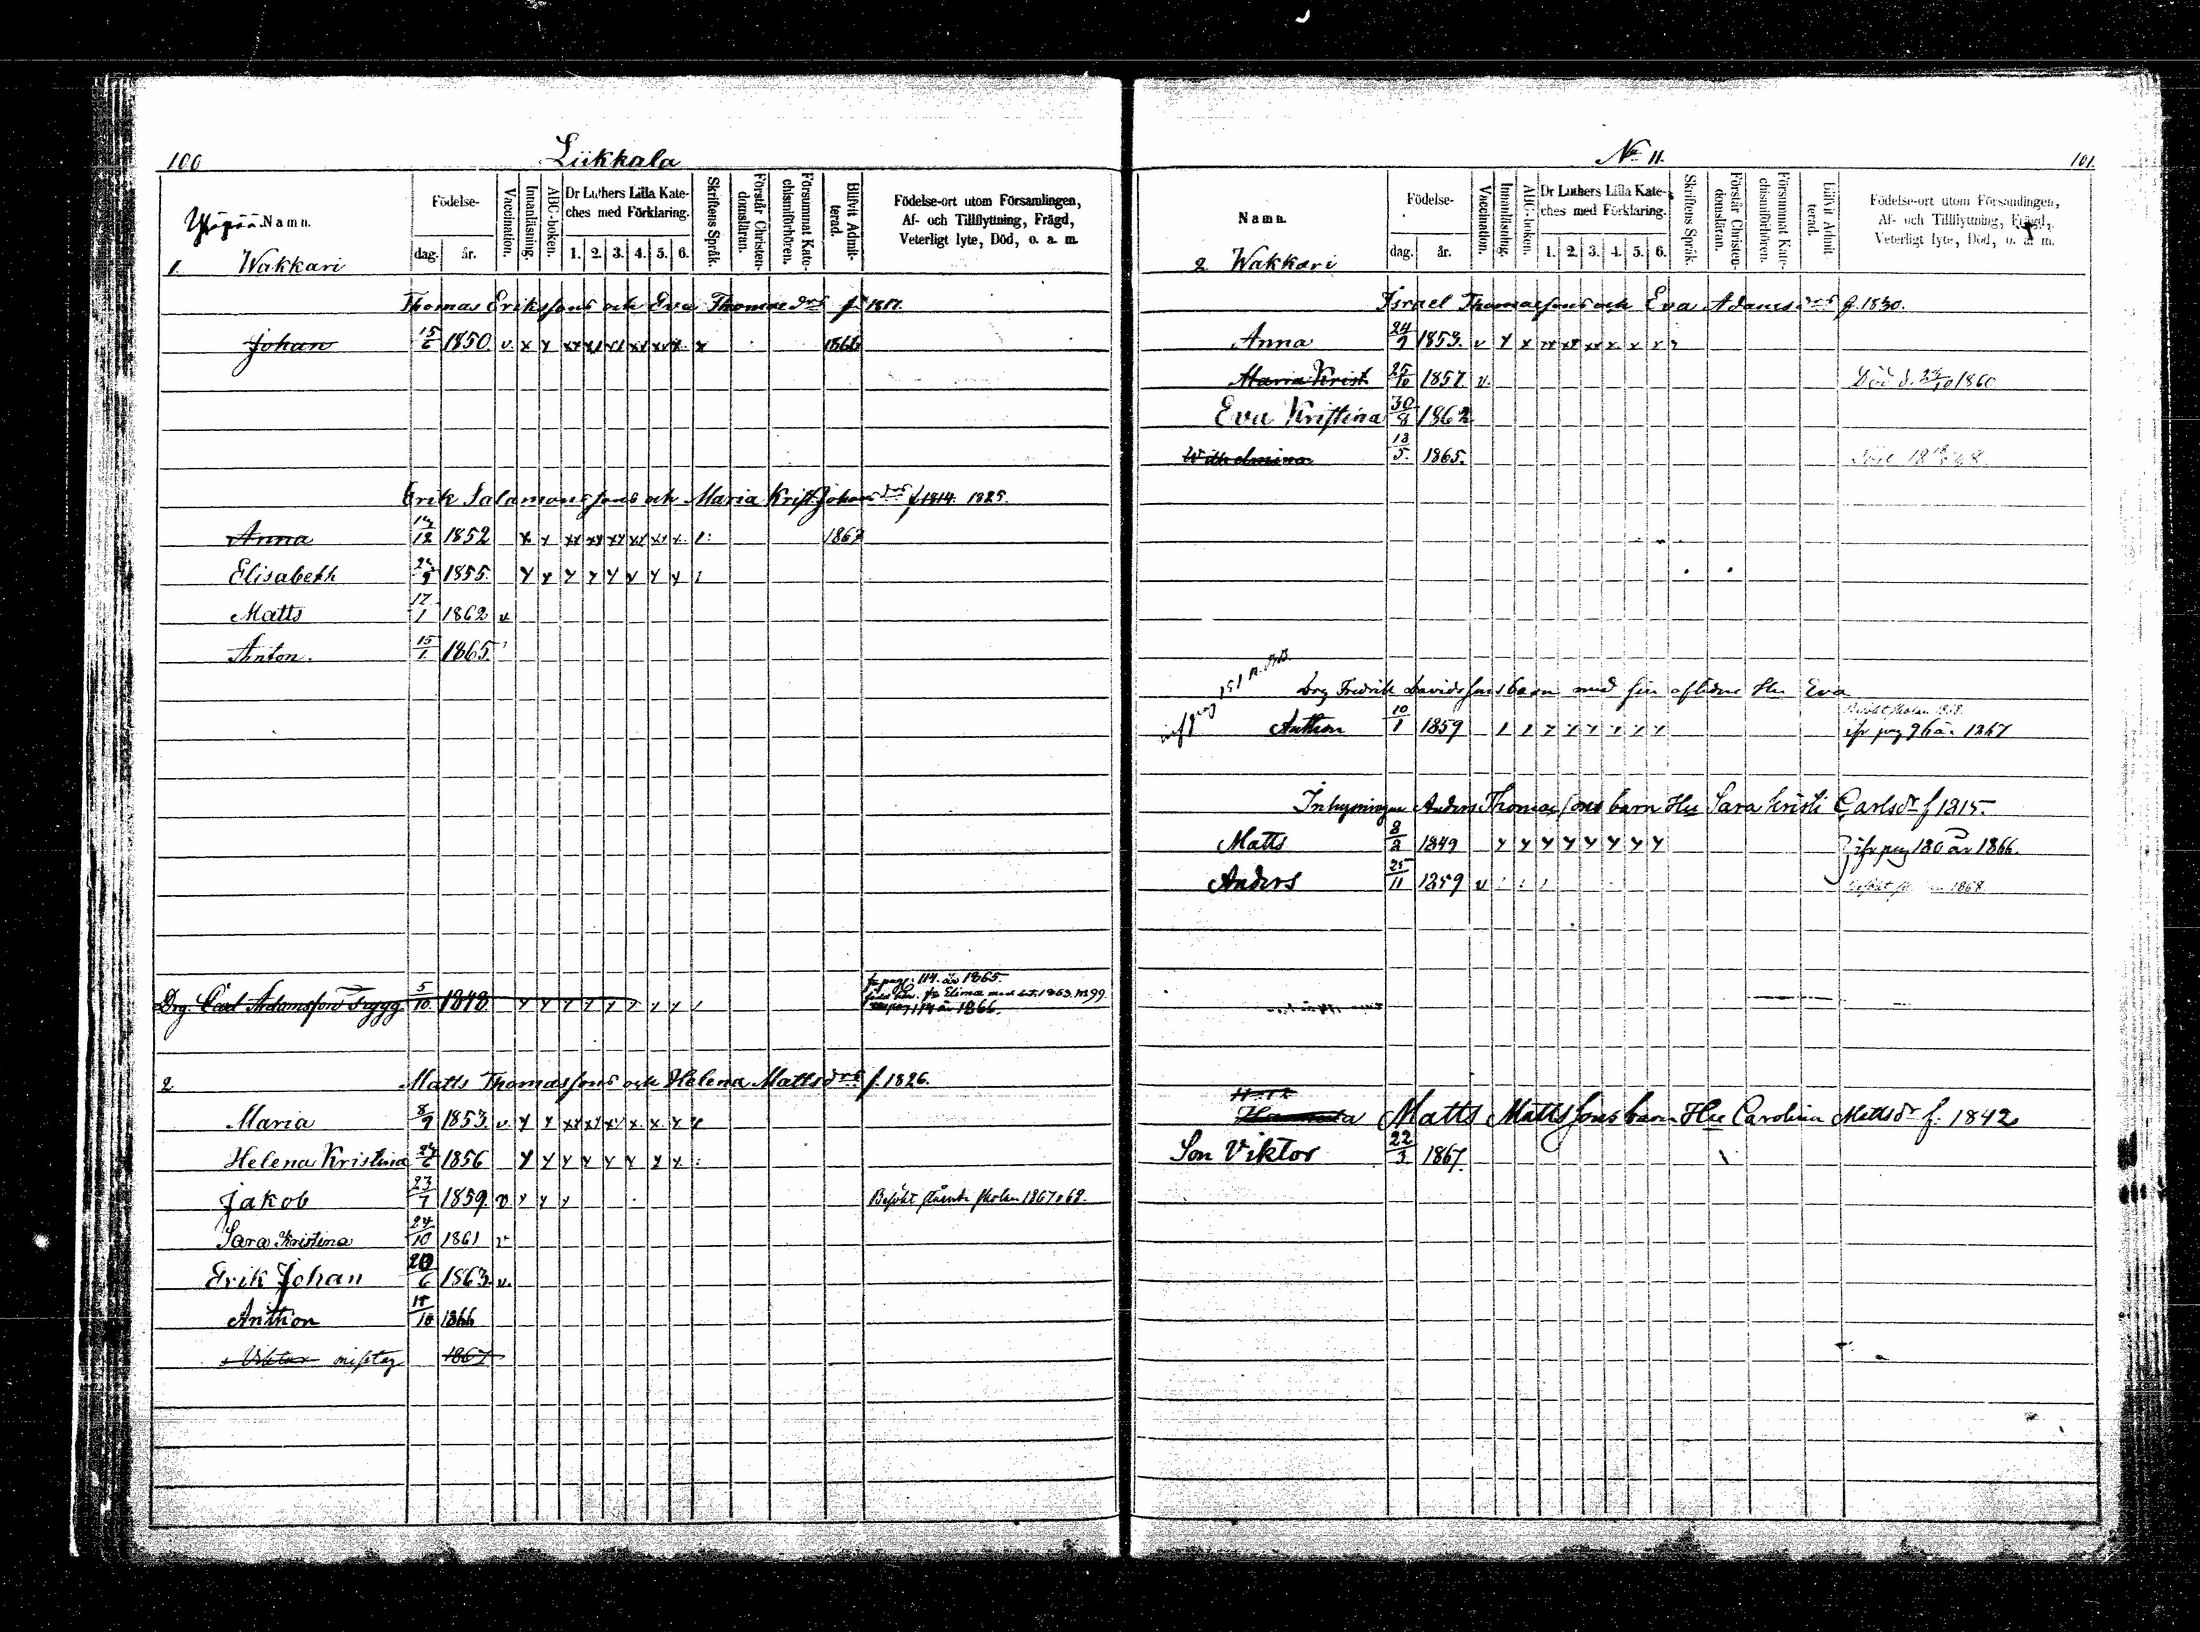 100
Liikkala
Namn.
Födelse-
dag. år.
Vaccination.
Innanläsning.
ABC-boken.
Dr Luthers Lilla Kate-
ches med Förklaring.
1. 2. 3. 4. 5. 6.
Skriftens Språk.
Förstår Christen-
domsläran.
Försummat Kate-
chismiförhören.
Blifvit Admit-
terad.
Födelse-ort utom Församlingen,
Af- och Tillflyttning, Frägd,
Veterligt lyte, Död, o. a. m.
1. Wakkari
Thomas Erikssons och Eva Thomae drs f. 1817.
Johan 15/6 1850 v. x x xx xx xx xx xx x x 1866
Erik Salamonssons och Maria Krist. Johans drs f. 1814. 1825.
Anna 12 1852 x x xx xx xx xx xx x 1867
Elisabeth 9 1855 x x x x x x x x
Matts 17/1 1862 v
Anton. 15/1 1865
Drg. Carl Adamsson Trygg 5/10 1848 x x x x x x x x
114 år 1865.
fr Elima 1863. N 99
114 år 1866.
2 Matts Thomassons och Helena Mattsdrs f. 1826.
Maria 8/9 1853 v x x xx xx xx x x x x
Helena Kristina 24/6 1856 x x x x x x x x
Jakob 23/7 1859 v x x x Besökt skolan 1867 o 68.
Sara Kristina 24/10 1861 v
Erik Johan 20/6 1863 v.
Anthon 18/10 1866
Viktor misstag 1867
No 11.
101
Namn.
Födelse-
dag. år.
Vaccination.
Innanläsning.
ABC-boken.
Dr Luthers Lilla Kate-
ches med Förklaring.
1. 2. 3. 4. 5. 6.
Skriftens Språk.
Förstår Christen-
domsläran.
Försummat Kate-
chismiförhören.
Blifvit Admit-
terad.
Födelse-ort utom Församlingen,
Af- och Tillflyttning, Frägd,
Veterligt lyte, Död, o. a. m.
2 Wakkari
Israel Thomassons och Eva Adamsdrs f. 1830.
Anna 24/9 1853 v x x xx xx xx x x x
Maria Krist 25/10 1857 v. Död d. 1860
Eva Kristina 30/8 1862
Wilhelmina 13/5 1865.
Drg Fredrik Davidssons barn med sin aflidne Hu Eva
Anthon 10/1 1859 pag 96 år 1867
Inhysingen Anders Thomassons barn Hu Sara Kristi Carlsdr f 1815.
Matts 8/2 1849 x x x x x x x x pag 180 år 1866.
Anders 25/11 1859 v 1868.
Matts Mattssons barn Hu Carolina Mattsdr f. 1842
Son Viktor 22/3 1867.